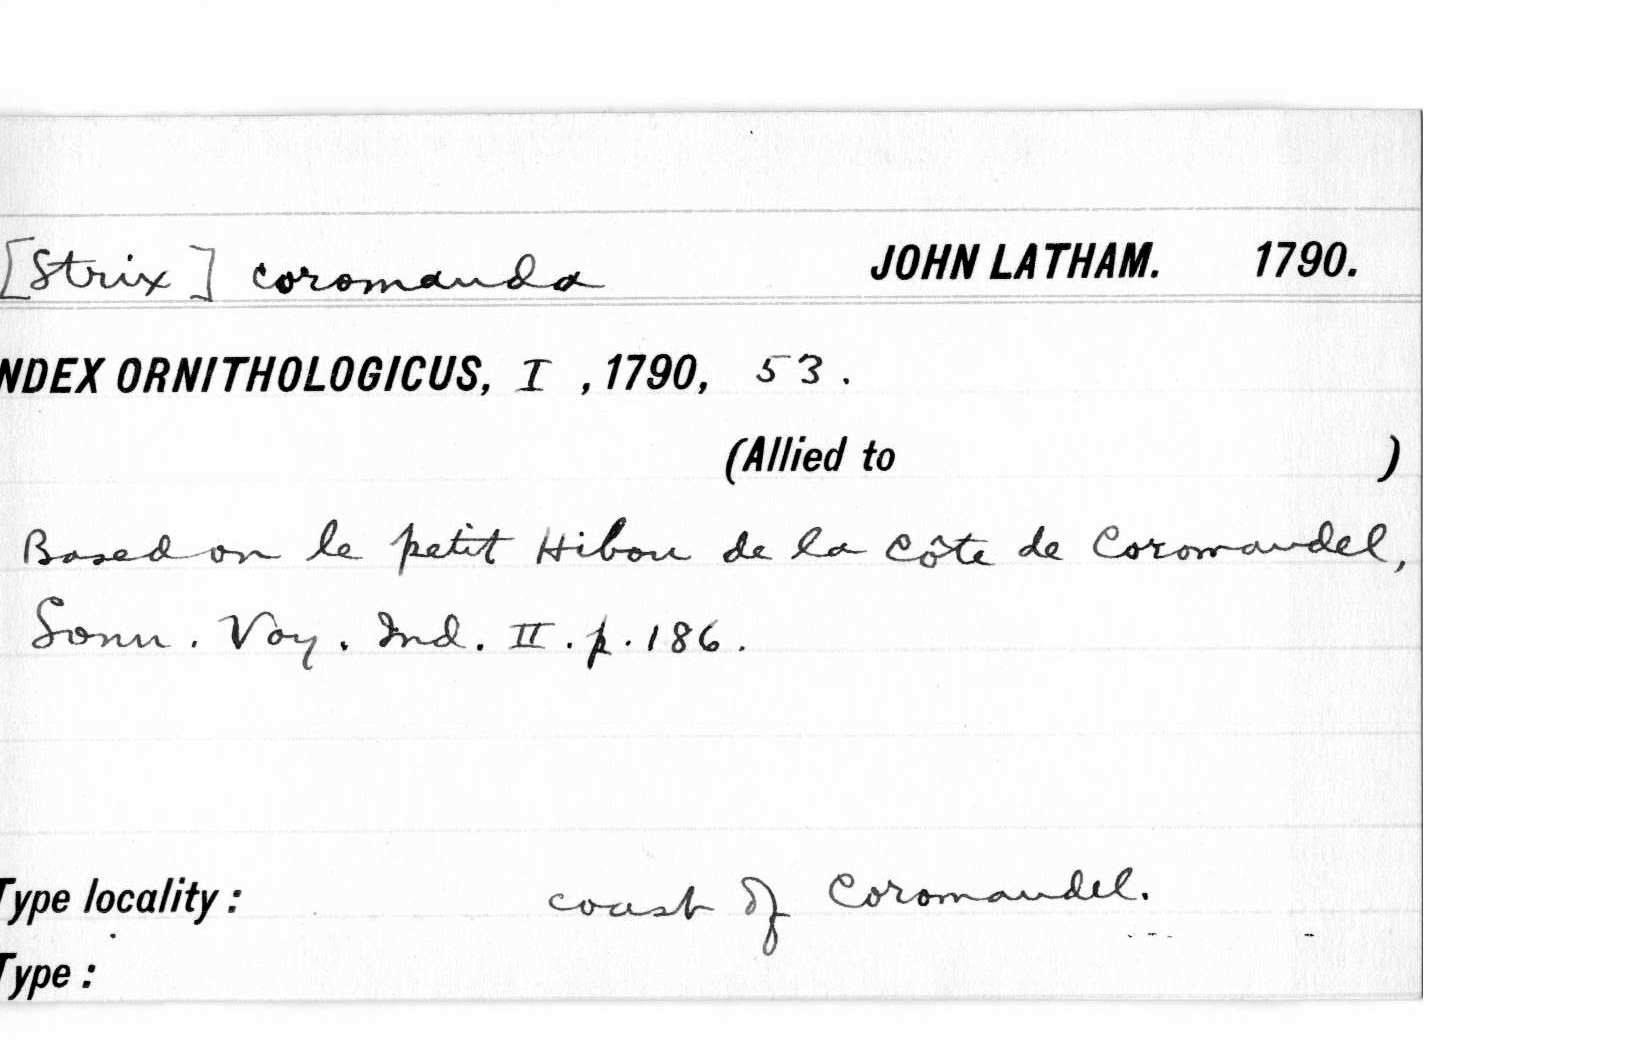 [Strix] coromanda JOHN LATHAM. 1790.
NDEX ORNITHOLOGICUS, I , 1790, 53.
(Allied to )
Based on le petit Hibou de la Côte de Coromandel,
Sonn. Voy. Ind. II. p. 186.
Type locality: coast of Coromandel.
Type: